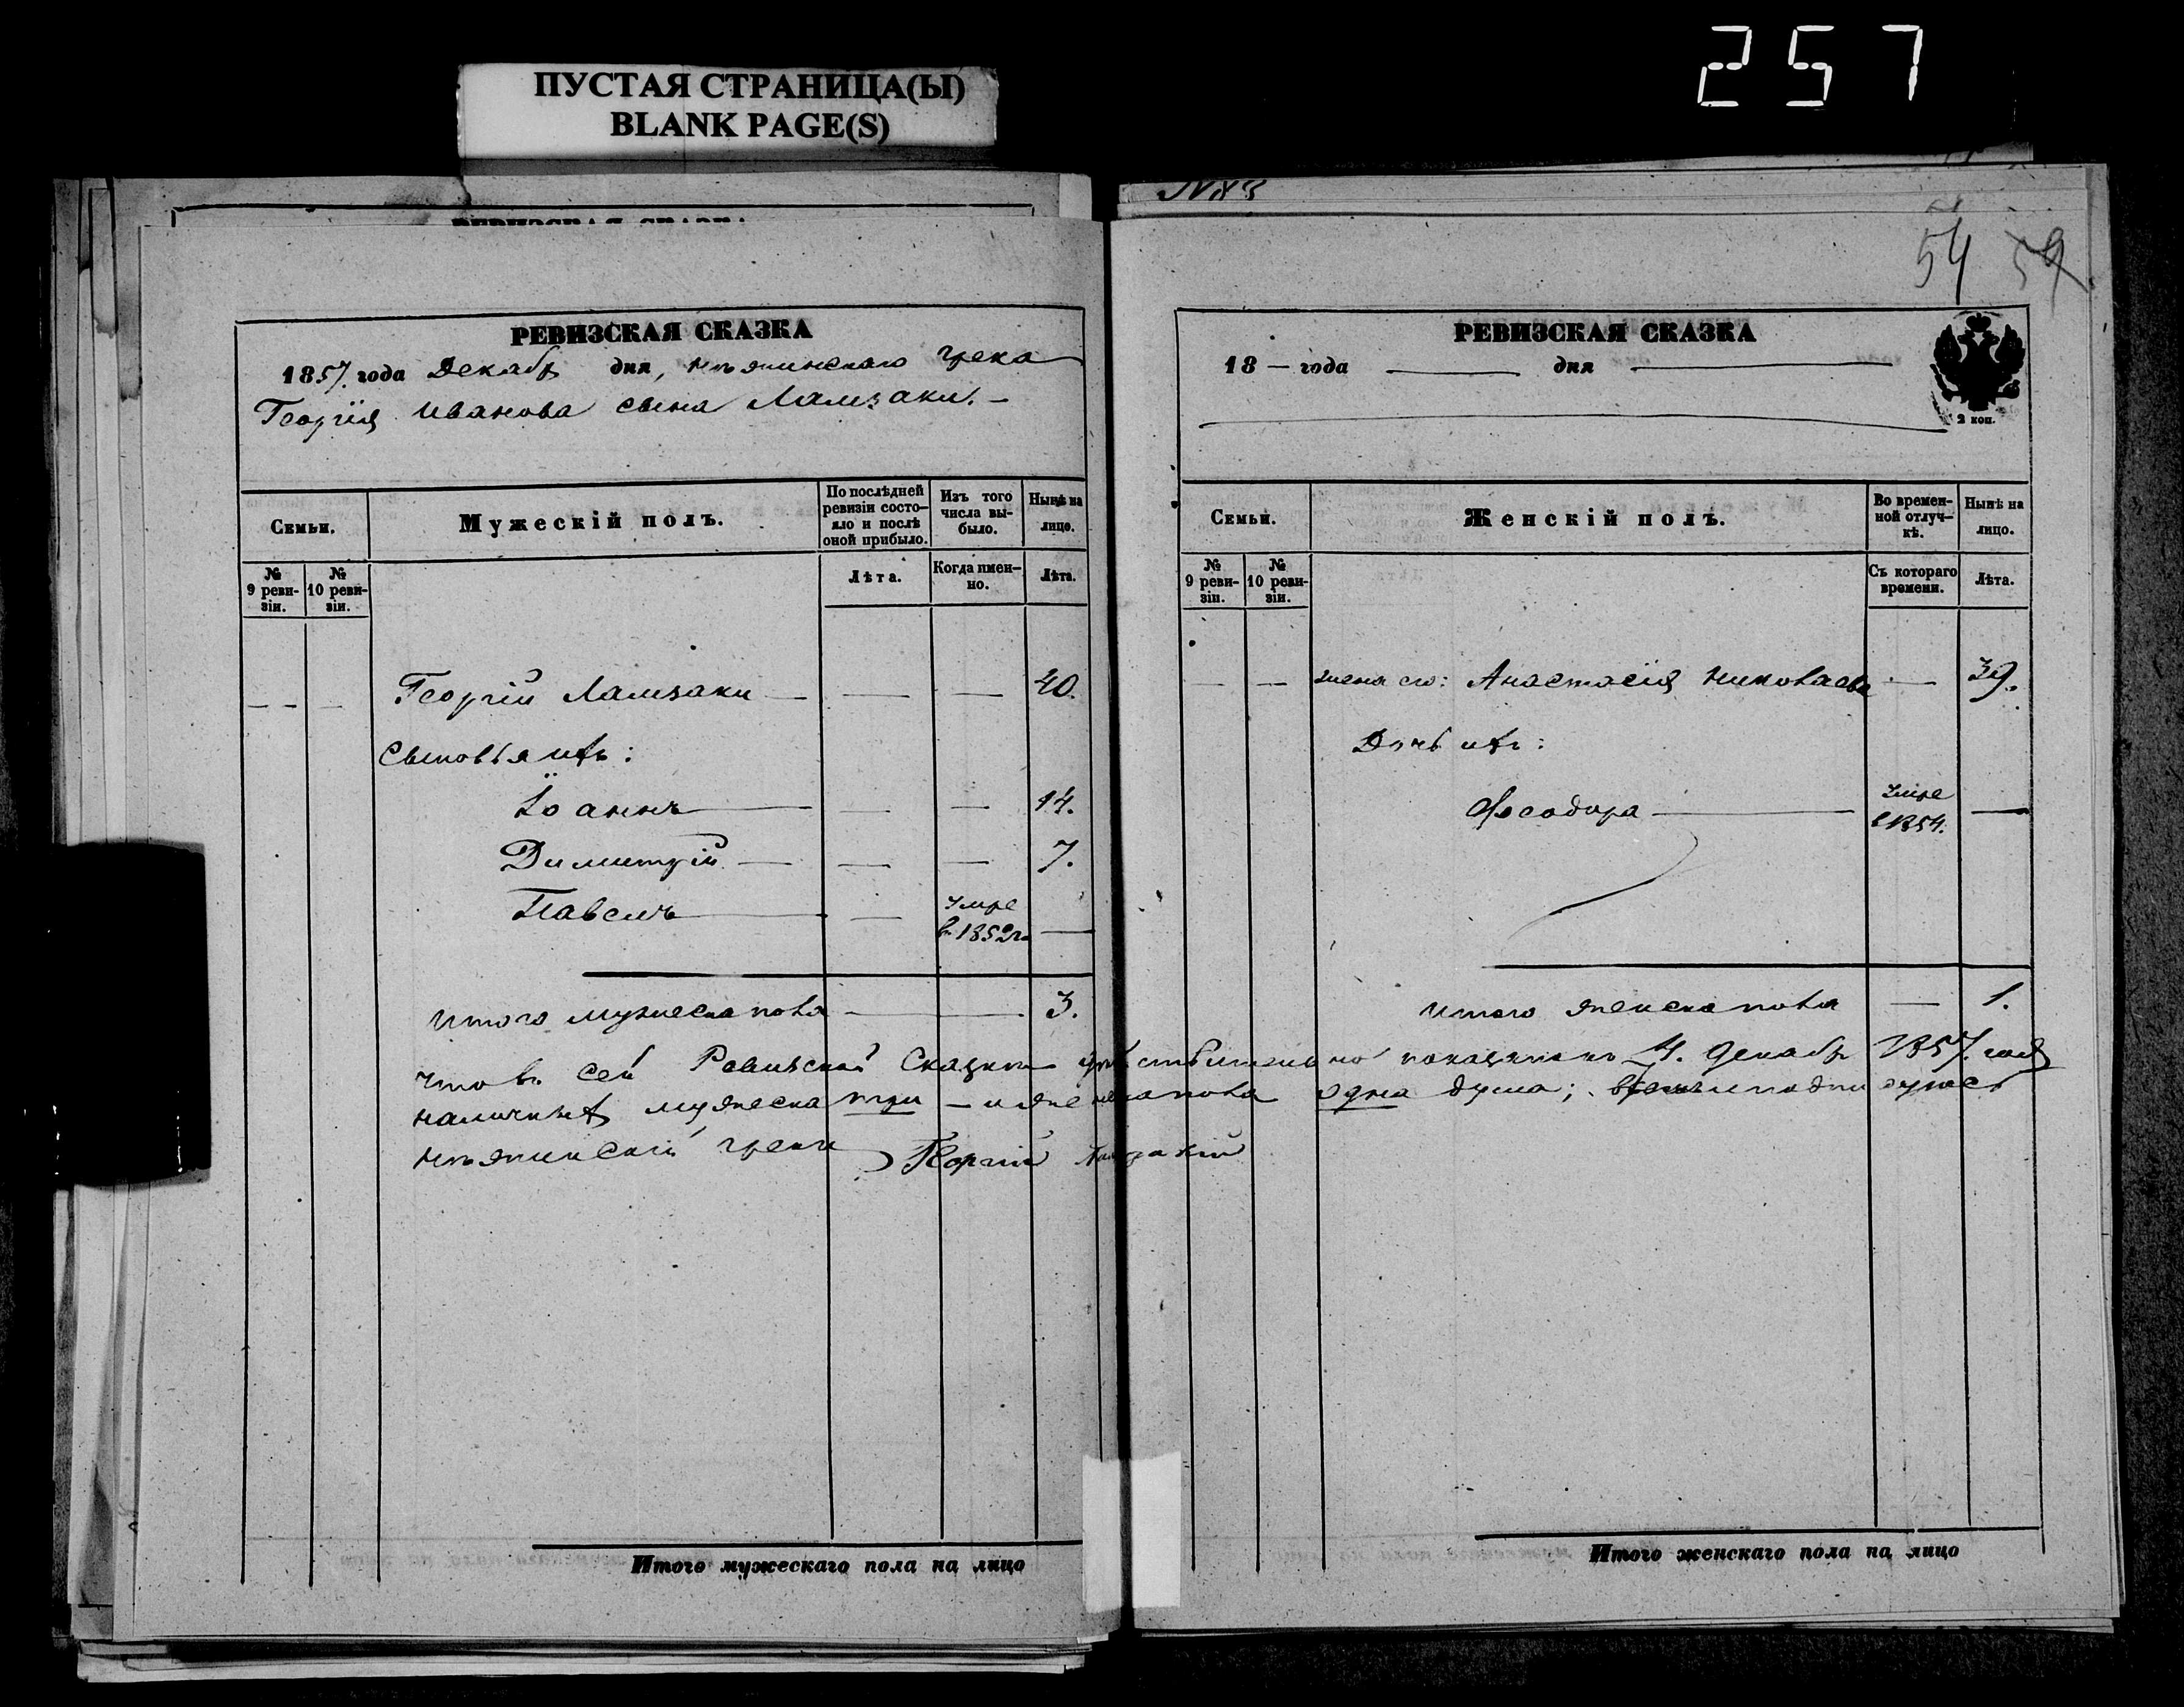 257
ПУСТАЯ СТРАНИЦА(Ы)
BLANK PAGE(S)
РЕВИЗСКАЯ СКАЗКА
1857. года Декабр дня, нѣжинскаго грека
Георгія Иванова сына Ламзаки. —
Семьи.
Мужескій полъ.
По послѣдней ревизіи состояло и послѣ оной прибыло.
Изъ того числа выбыло.
Нынѣ на лицо.
№ 9 ревизіи.
№ 10 ревизіи.
Лѣта.
Когда именно.
Лѣта.
— — — Георгій Ламзаки — — — 40.
Сыновья ихъ:
Іоаннъ — — — 14.
Димитрій — — — 7.
Павелъ — — умре в 1852 г. —
Итого мужеска пола — — 3.
Итого мужескаго пола на лицо
№83
54 59
РЕВИЗСКАЯ СКАЗКА
18 — года — дня —
2 коп.
Семьи.
Женскій полъ.
Во временной отлучкѣ.
Нынѣ на лицо.
№ 9 ревизіи.
№ 10 ревизіи.
Съ котораго времени.
Лѣта.
— — жена его: Анастасія Николаева — 39.
Дочь ихъ:
Ѳеодора — умре в 1854. —
Итого женска пола — 1.
что въ сей Ревизской Сказки действительно показано къ 4. Декабр 1857. года
наличныхъ мужеска три — и женска пола одна душа;
нѣжинскій грекъ Георгій Ламзакій
Итого женскаго пола на лицо